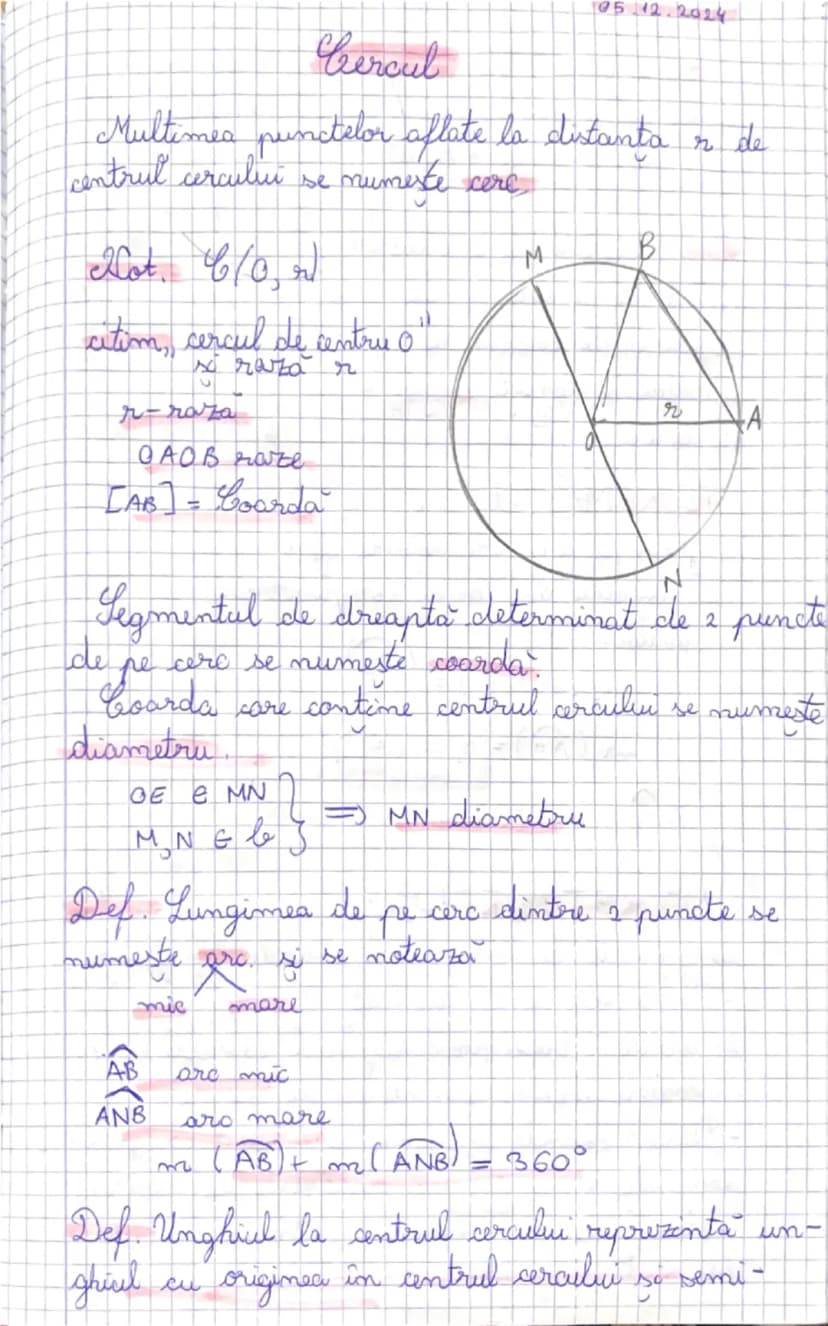 05.12.2024
Cercul
Multimea punctelor aflate la distanța r de
centrul cercului se numește cerc
Not. C(O, r)
citim „cercul de centru O"
și rază r
r-rază
OAOB raze
[AB] = Coardă
M
B
r
A
O
N
Segmentul de dreaptă determinat de 2 puncte
de pe cerc se numește coardă.
Coarda care conține centrul cercului se numește
diametru.
OE e MN
M,N ∈ C } => MN diametru
Def. Lungimea de pe cerc dintre 2 puncte se
numește arc. și se notează
mic mare
AB arc mic
ANB arc mare
m (AB) + m(ANB) = 360°
Def. Unghiul la centrul cercului reprezintă un-
ghiul cu originea în centrul cercului și semi-